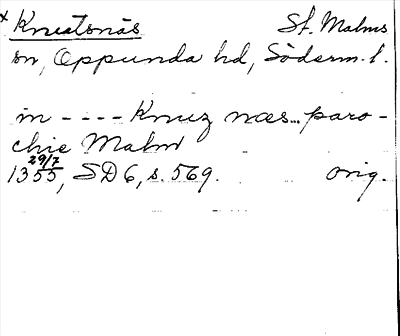 x Knutsnäs St. Malms
sn, Oppunda hd, Söderm. l.
in - - - - Knuz næs... paro-
chie Malm
29/7
1355, SD 6, s. 569. orig.